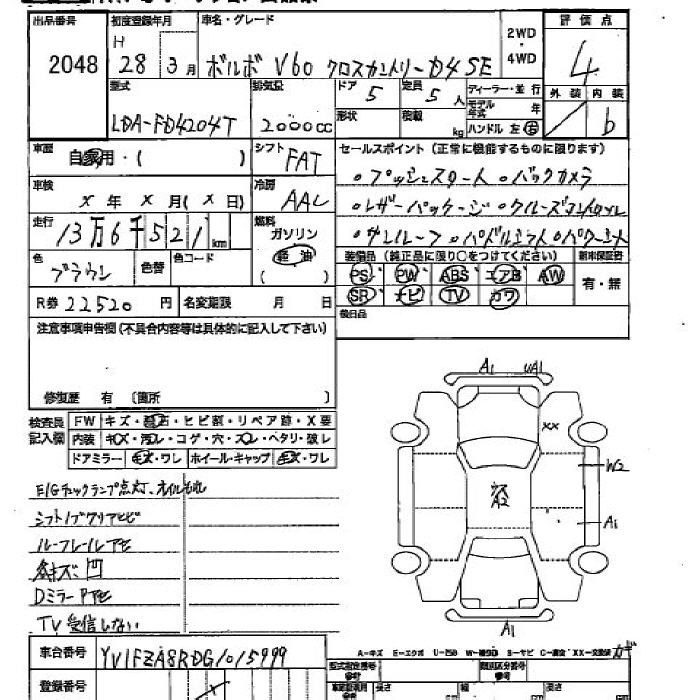 出品番号 初度登録年月 車名・グレード 2WD・4WD 評価点
2048 H 28 3月 ボルボ V60 クロスカントリー D4 SE 4
型式 排気量 ドア 5 定員 5人 ディーラー・並行 外装 内装
LDA-FD4204T 2000cc 形状 積載 kg モデル年式 年 b
ハンドル 左 右
車歴 自家用・( ) シフト FAT セールスポイント (正常に機能するものに限ります)
車検 X年 X月(X日) 冷房 AAC
。プッシュスタート 。バックカメラ
。レザーパッケージ 。クルーズコントロール
。サンルーフ 。パドルシフト 。パワーシート
走行 13万6千521km 燃料 ガソリン 軽油 ( )
色 ブラウン 色替 色コード
装備品 (純正品に限り○をつけてください) 新車保証書
PS PW ABS エアB AW 有・無
SR ナビ TV カワ
R券 22520円 名変期限 月 日
後日品
注意事項申告欄 (不具合内容等は具体的に記入して下さい)
修復歴 有 〔箇所 〕
検査員記入欄 FW キズ・飛石・ヒビ割・リペア跡・X要
内装 キズ・汚れ・コゲ・穴・スレ・ヘタリ・破レ
ドアミラー キズ・ワレ ホイール・キャップ キズ・ワレ
A1 UA1
XX
W2
A2
A1
A1
E/Gチェックランプ点灯、オイルもれ
シフトノブクリアヒビ
ルーフレールアセ
Dミラー アセ
TV受信しない
車台番号 YV1FZA8RDG1015999
登録番号
A-キズ E-エクボ